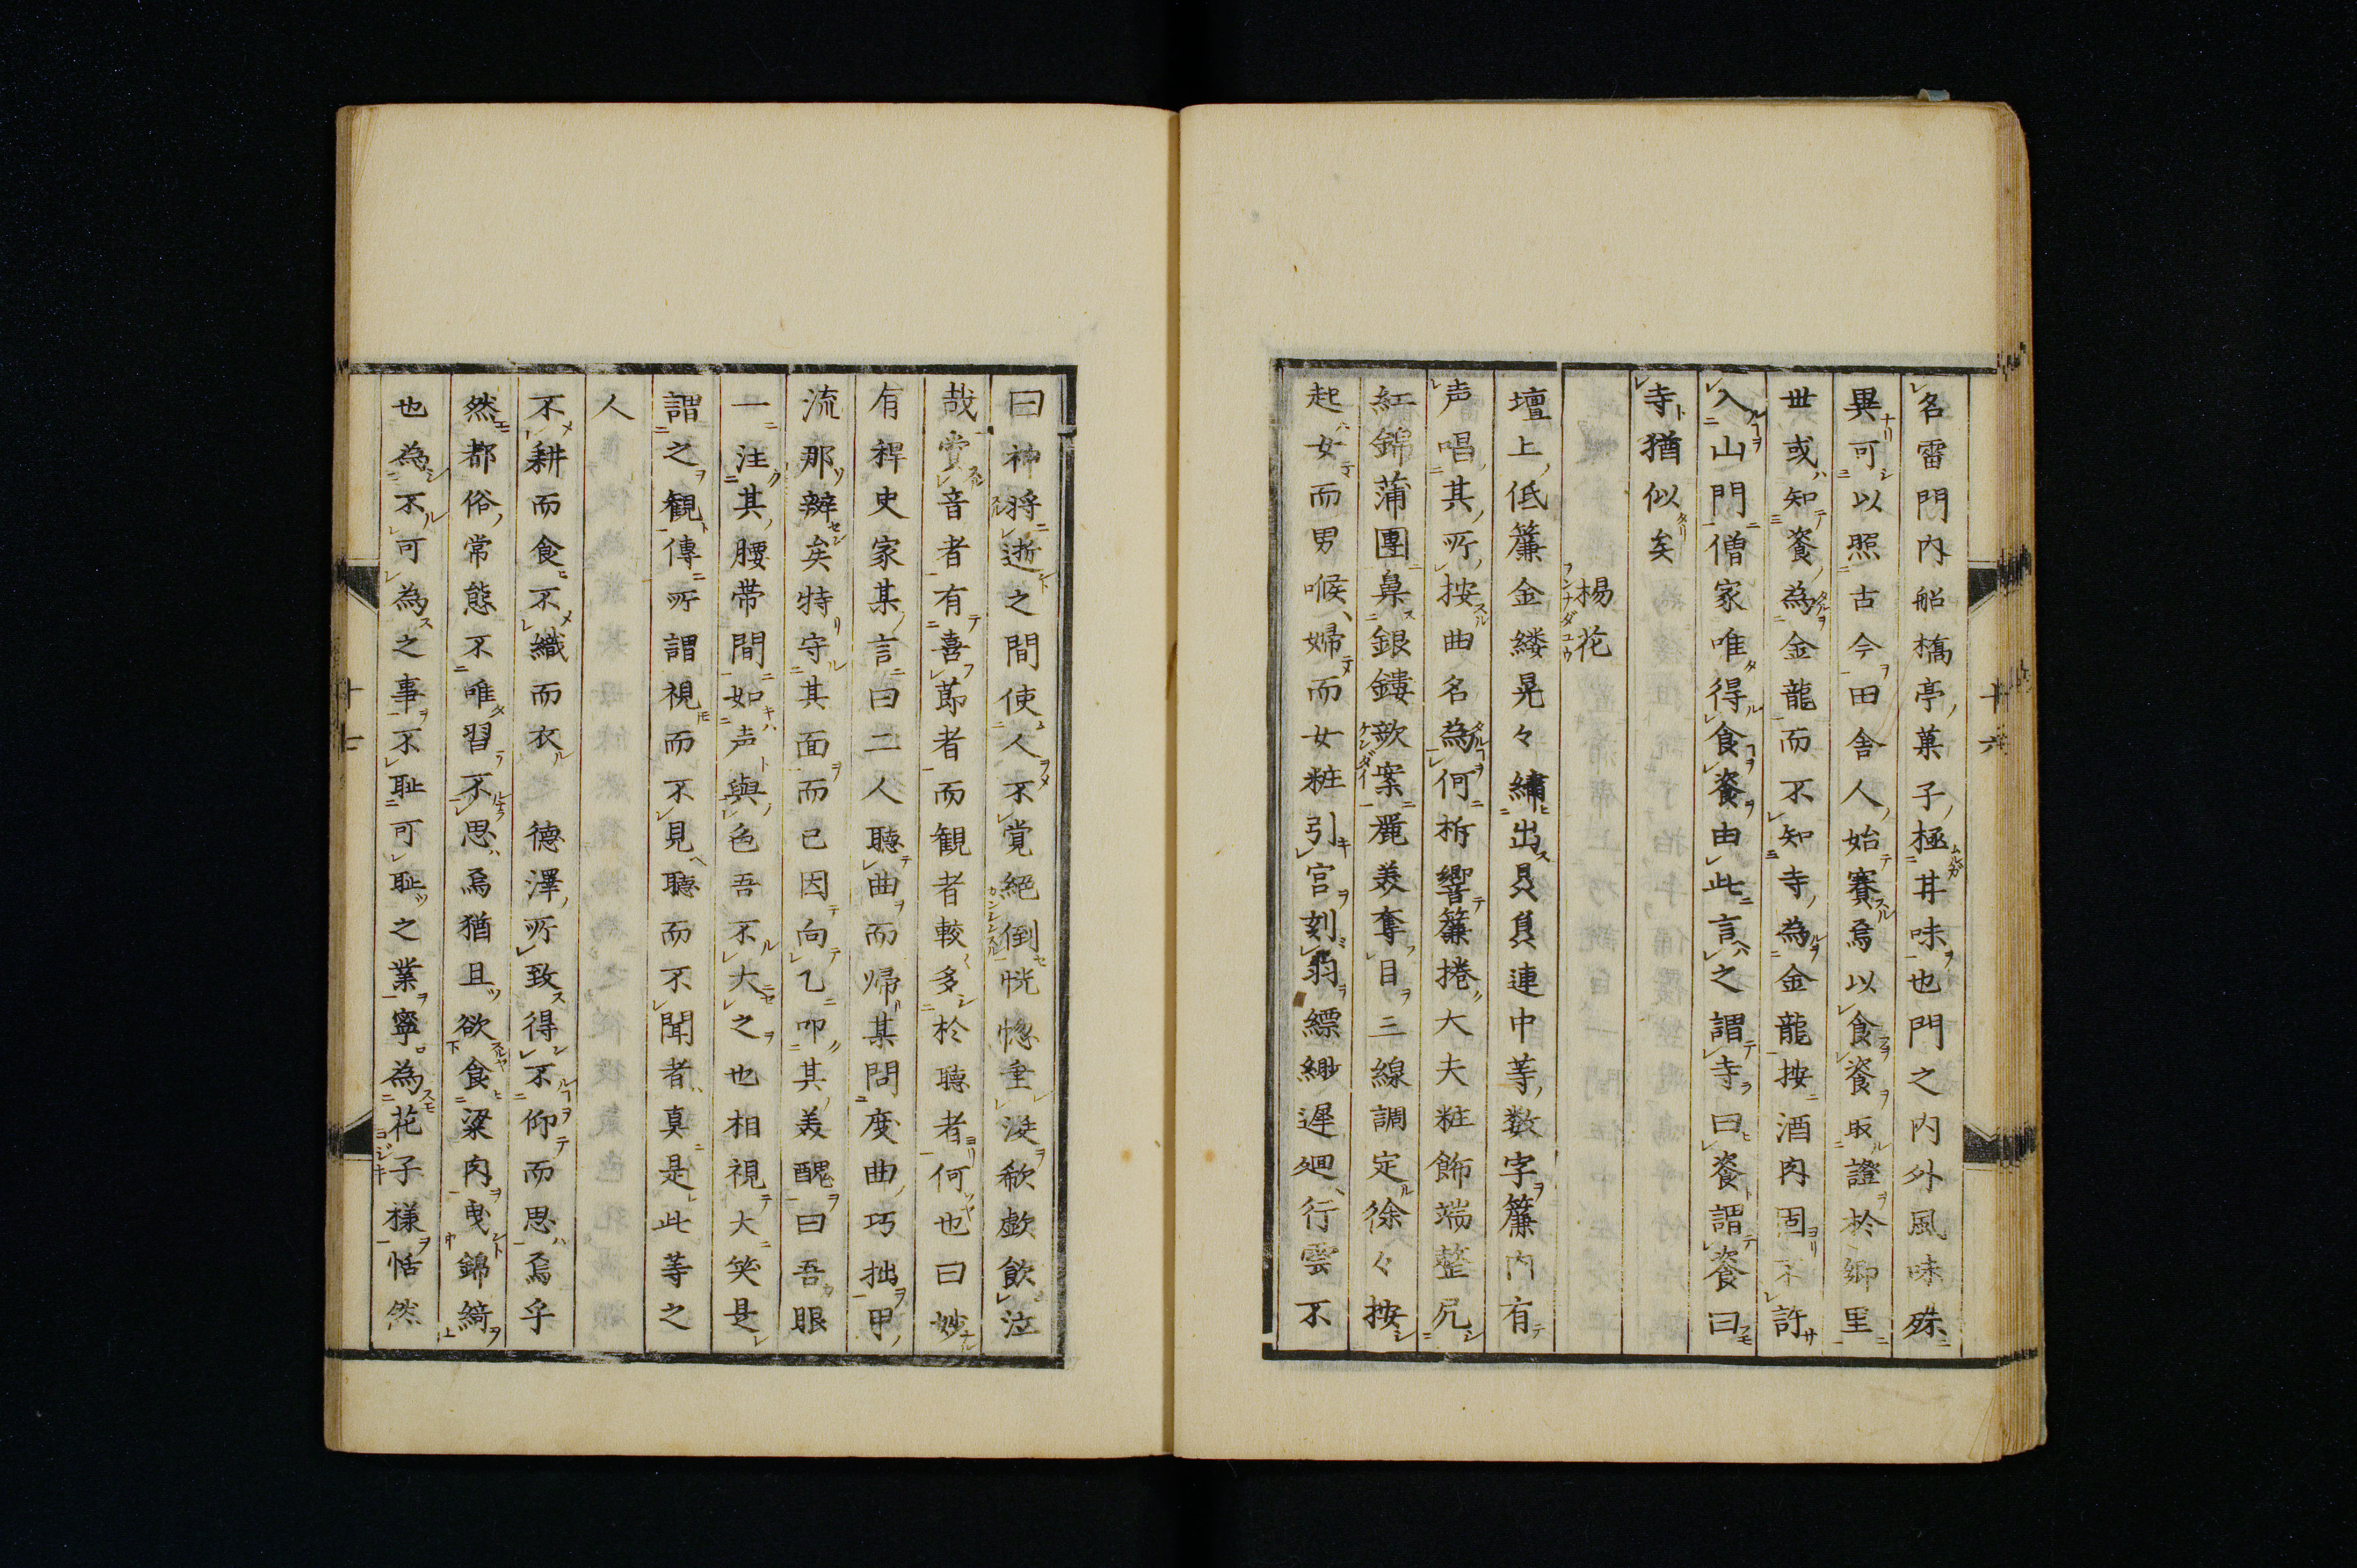 名雷門内船橋亭菓子極丼味也門之内外風味殊
異可以照古今田舎人始賽焉以食餈取證於郷里
世或知餈為金龍而不知寺為金龍按酒肉固不許
入山門僧家唯得食餈由此言之謂寺曰餈謂餈曰
寺猶似矣
楊花
壇上低簾金縷晃々繡出某某連中等数字簾内有
声唱其所按曲名為何柝響簾捲大夫粧飾端整凭
紅錦蒲團臬銀鏤欹案麗美奪目三線調定徐々按
起女而男喉婦而女粧引宮刻羽縹緲遲廻行雲不
十六
曰神将逝之間使人不覚絶倒恍惚垂涙欷歔飲泣
哉賞音者有喜節者而観者較多於聴者何也曰妙
有稗史家某言曰二人聴曲而帰某問度曲巧拙甲
流那辨矣特守其面而已因向乙叩其美醜曰吾眼
一注其腰帯間如声與色吾不大之也相視大笑是
謂之観傳所謂視而不見聴而不聞者真是此等之
人
不耕而食不織而衣 德澤所致得不仰而思焉乎
然都俗常態不唯習不思焉猶且欲食粱肉曳錦綺
也為不可為之事不耻可耻之業寧為花子様恬然
十七